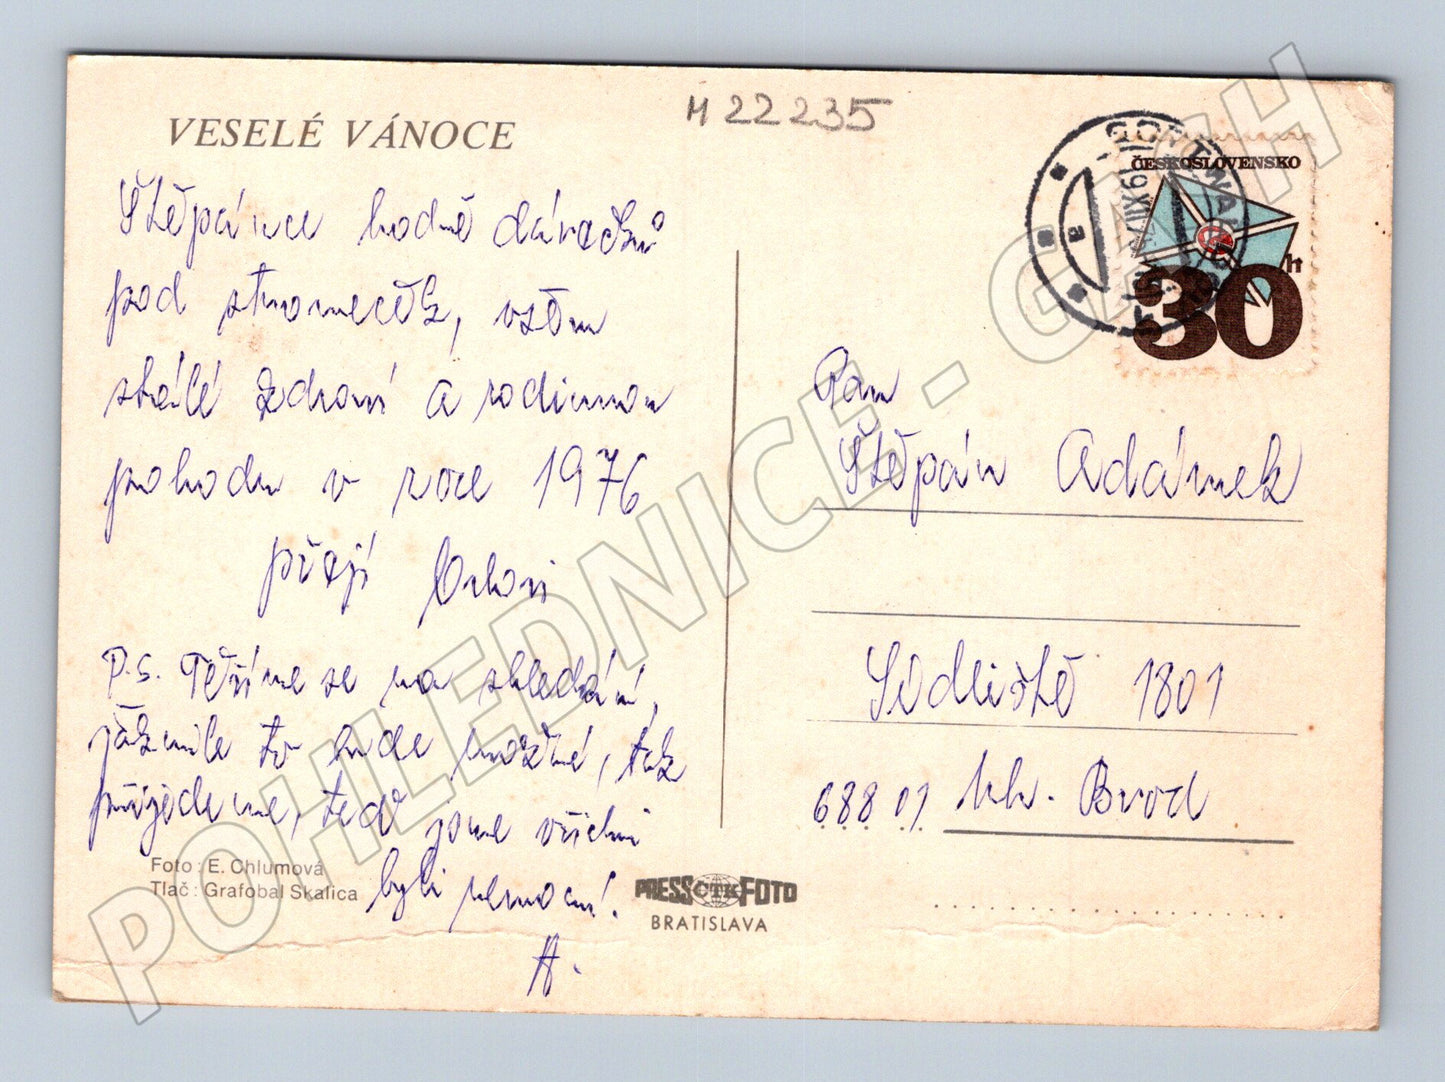 VESELÉ VÁNOCE
M 22235
Štěpánce hodně dárečků
pod stromeček, všem
stálé zdraví a rodinnou
pohodu v roce 1976
přejí
P.S. Těšíme se na shledání,
jakmile to bude možné, tak
přijedeme, teď jsme všichni
byli nemocní.
A.
Foto: E. Chlumová
Tlač: Grafobal Skalica
PRESS ČTK FOTO
BRATISLAVA
ČESKOSLOVENSKO
30h
GOTTWALDOV
a
Pan
Štěpán Adámek
Sídliště 1801
688 01 Uh. Brod
POHLEDNICE - GACH